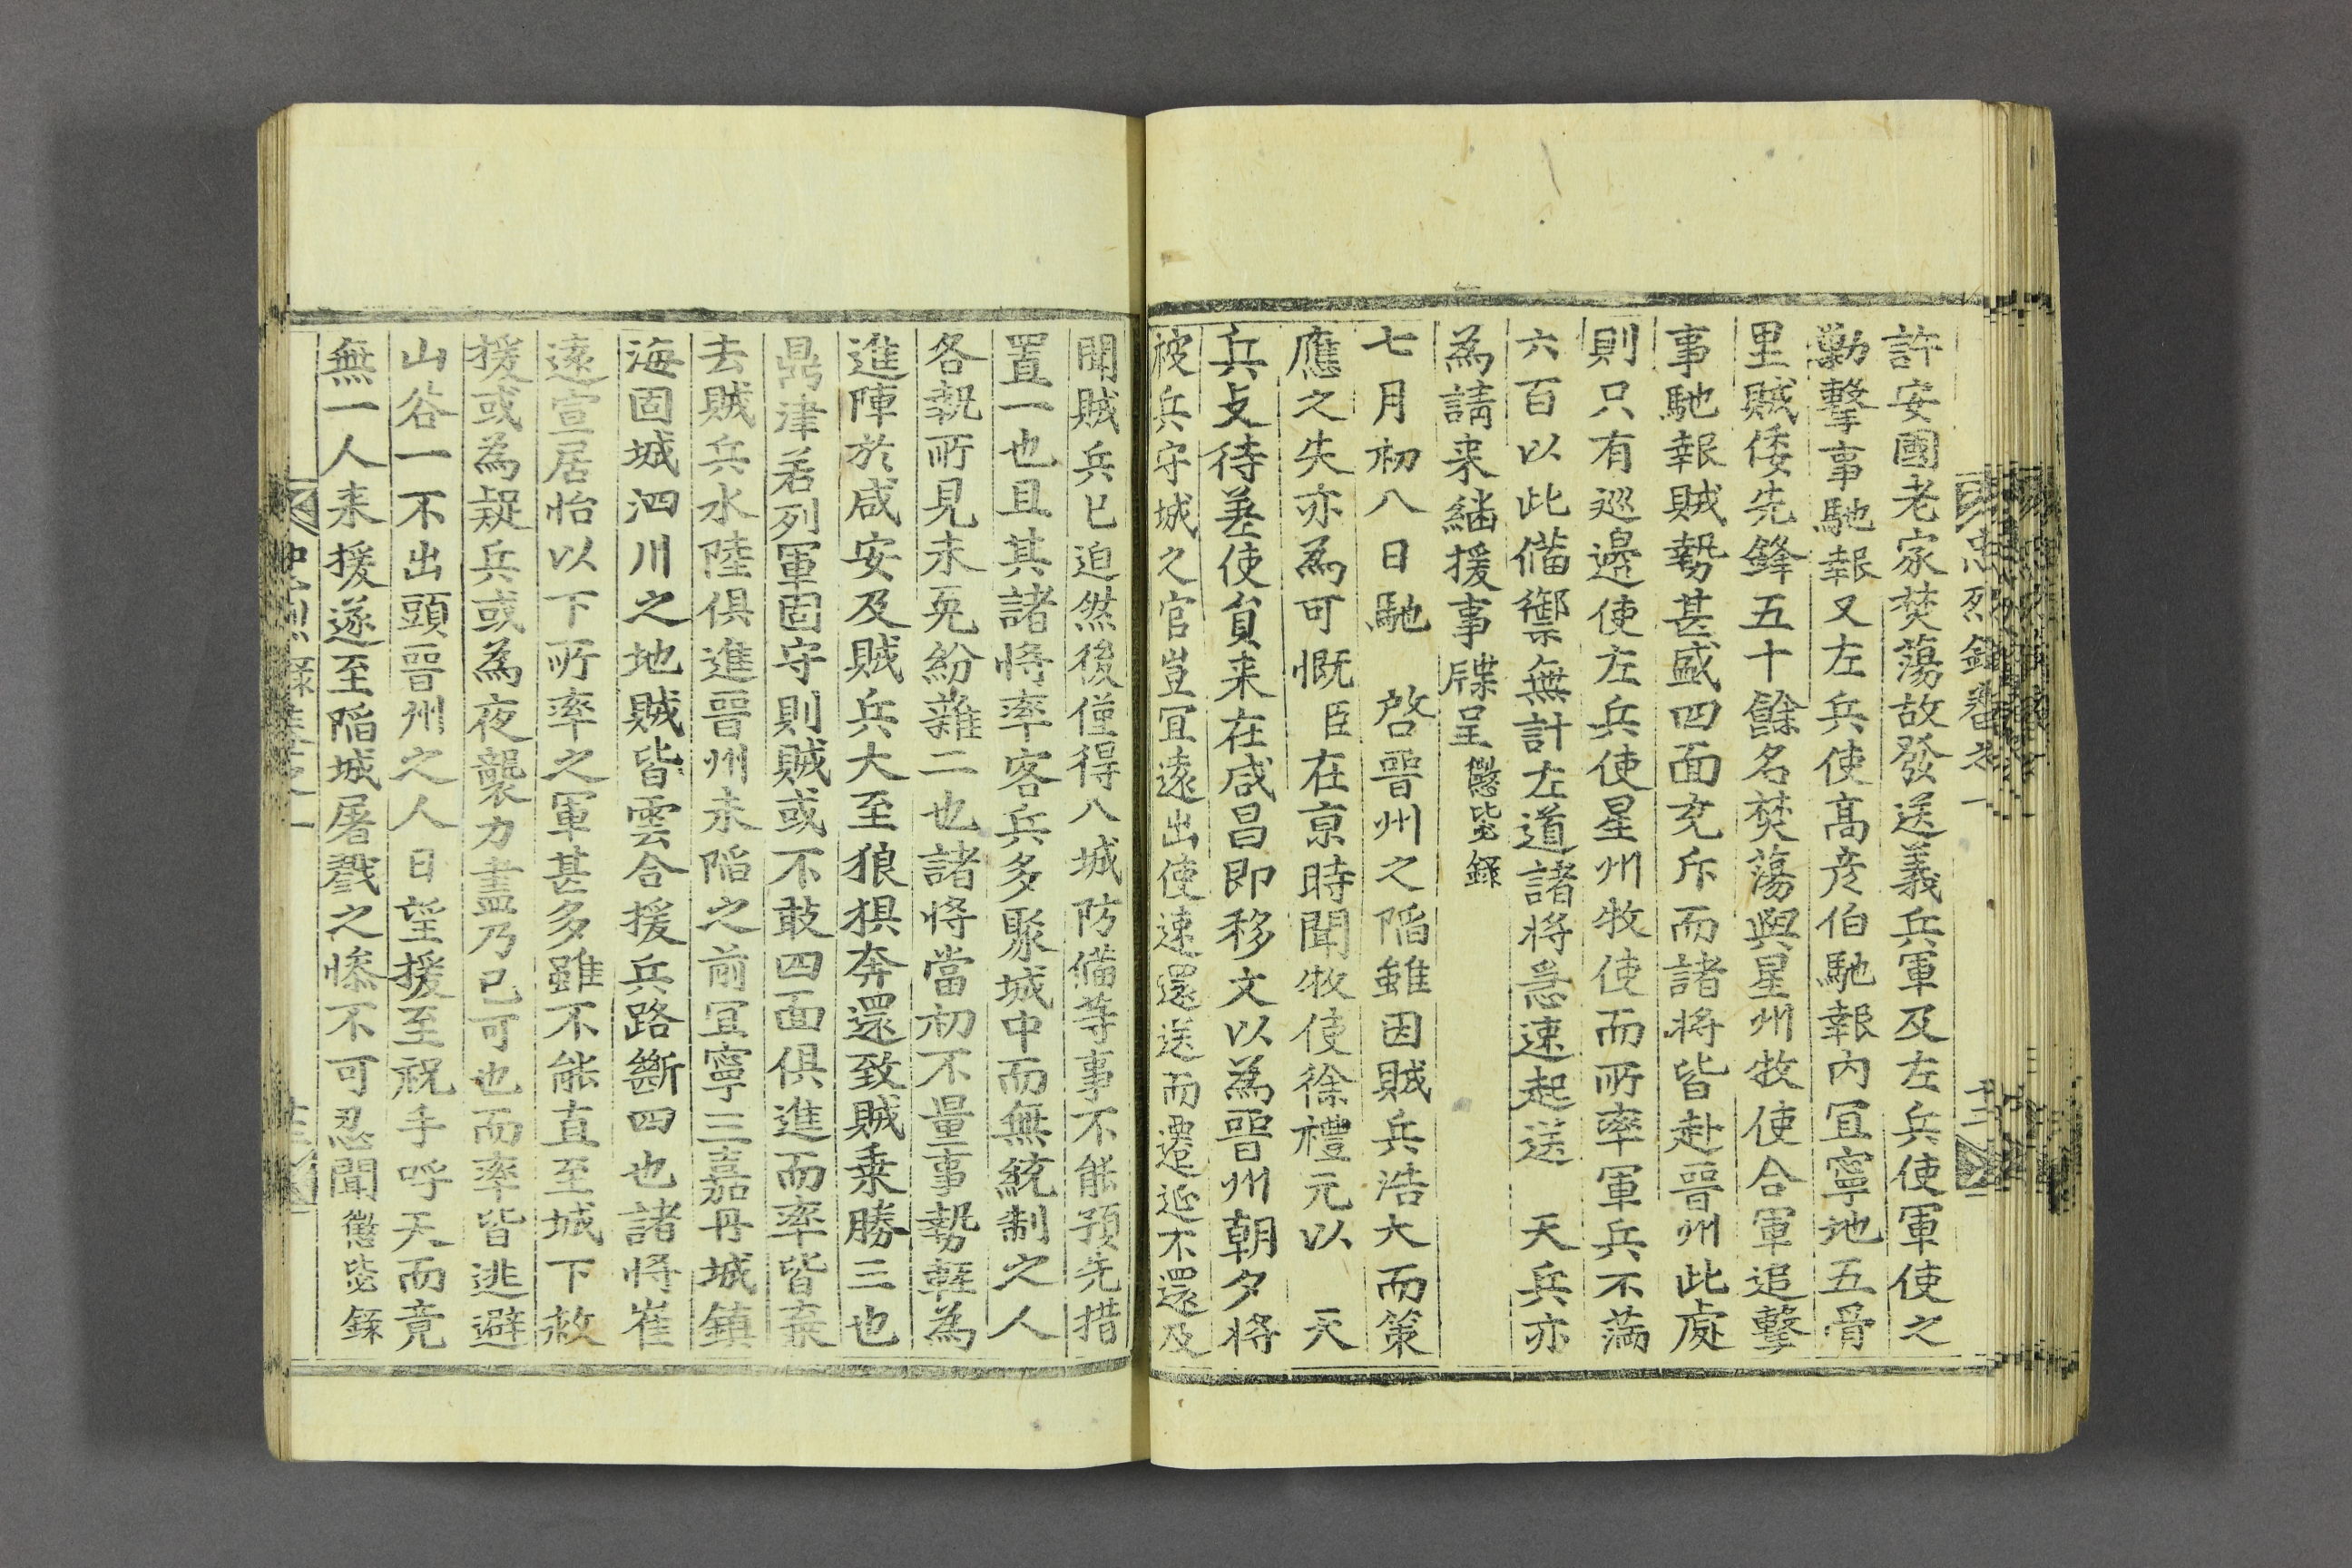 許安國老家焚蕩故發送義兵軍及左兵使軍使之
勦擊事馳報又左兵使高彦伯馳報內冝寧地五骨
里賊倭先鋒五十餘名焚蕩與星州牧使合軍追擊
事馳報賊勢甚盛四面充斥而諸將皆赴晉州此處
則只有巡邊使左兵使星州牧使而所率軍兵不滿
六百以此備禦無計左道諸將急速起送 天兵亦
為請来繼援事牒呈 懲毖錄
七月初八日馳 啓晉州之陷雖因賊兵浩大而策
應之失亦為可慨臣在京時聞牧使徐禮元以 天
兵支待差使貟来在咸昌即移文以為晉州朝夕將
被兵守城之官豈冝遠出使速還送而遷延不還及
聞賊兵已迫然後僅得入城防備等事不能預先措
置一也且其諸將率客兵多聚城中而無統制之人
各執所見未免紛雜二也諸將當初不量事勢輕為
進陣於咸安及賊兵大至狼狽奔還致賊乗勝三也
鼎津若列軍固守則賊或不敢四面俱進而率皆棄
去賊兵水陸俱進晉州未陷之前冝寧三嘉丹城鎮
海固城泗川之地賊皆雲合援兵路斷四也諸將崔
遠宣居怡以下所率之軍甚多雖不能直至城下赦
援或為疑兵或為夜襲力盡乃已可也而率皆逃避
山谷一不出頭晉州之人日望援至祝手呼天而竟
無一人来援遂至陷城屠戮之慘不可忍聞 懲毖錄
忠烈錄卷之一